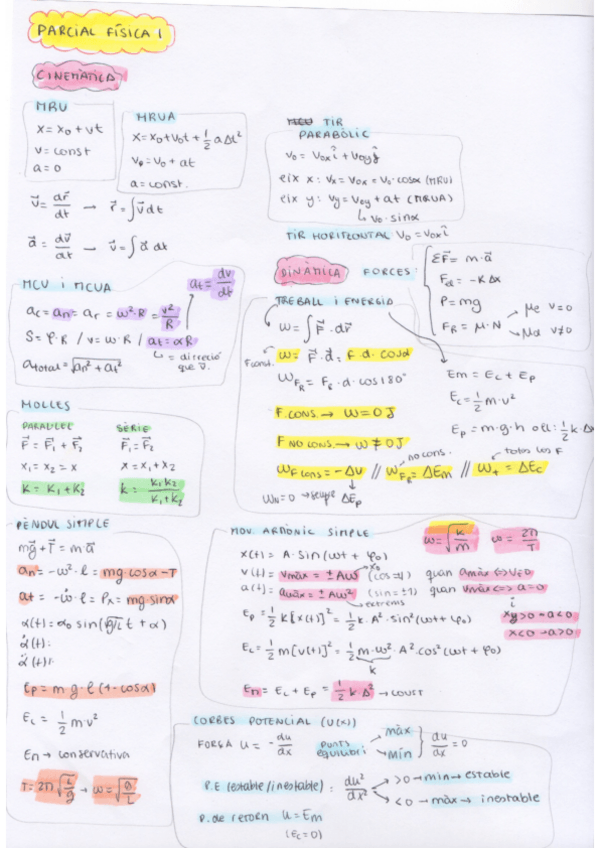 PARCIAL FÍSICA 1
CINEMÀTICA
MRU
x = x₀ + vt
v = const
a = 0
MRUA
x = x₀ + v₀t + 1/2 a Δt²
vφ = v₀ + at
a = const.
TIR
PARABÒLIC
v₀ = v₀ₓ î + v₀y ĵ
eix x: vₓ = v₀ₓ = v₀·cosα (MRU)
eix y: vy = v₀y + at (MRUA)
↳ v₀·sinα
TIR HORITZONTAL v₀ = v₀ₓ î
v⃗ = dr⃗/dt → r⃗ = ∫v⃗ dt
a⃗ = dv⃗/dt → v⃗ = ∫a⃗ dt
MCU i MCUA
at = dv/dt
ac = an = ar = ω²·R = v²/R
S = φ·R / v = ω·R / at = αR
↳ = direcció que v⃗.
atotal = √(an² + at²)
DINÀMICA FORCES:
ΣF⃗ = m·a⃗
Fel = -KΔx
P = mg
FR = μ·N → μe v=0
→ μd v≠0
TREBALL i ENERGIA
W = ∫F⃗·dr⃗
F const. W = F⃗·d⃗ = F·d·cosα
WFR = FR·d·cos180°
F.CONS. → W = 0 J
F NO CONS. → W ≠ 0 J
no cons.
totes les F
WF cons = -ΔU // WFR = ΔEm // WT = ΔEc
WN = 0 → sempre ΔEp
Em = Ec + Ep
Ec = 1/2 m·v²
Ep = m·g·h
MOLLES
PARAL·LEL
F⃗ = F⃗₁ + F⃗₂
x₁ = x₂ = x
K = K₁ + K₂
SÈRIE
F⃗₁ = F⃗₂
x = x₁ + x₂
K = K₁K₂/(K₁ + K₂)
PÈNDUL SIMPLE
mg⃗ + T⃗ = ma⃗
an = -ω²·l = mg cosα - T
at = -ω̇·l = Px = mg·sinα
α(t) = α₀ sin(√(g/L) t + α)
α̇(t):
α̈(t):
Ep = m·g·l(1 - cosα)
Ec = 1/2 m·v²
Em → conservativa
T = 2π√(L/g) → ω = √(g/L)
MOV. ARMÒNIC SIMPLE
ω = √(k/m) ω = 2π/T
x(t) = A·sin(ωt + φ₀)
v(t) = vmàx = ±Aω (cos=±1) quan amàx ⇔ v=0
a(t) = amàx = ±Aω² (sin=±1) quan vmàx ⇔ a=0
extrems
x>0 → a<0
x<0 → a>0
Ep = 1/2 K[x(t)]² = 1/2 k·A²·sin²(ωt + φ₀)
Ec = 1/2 m[v(t)]² = 1/2 m·ω²·A²·cos²(ωt + φ₀)
k
Em = Ec + Ep = 1/2 k·A² → const
CORBES POTENCIAL (U(x))
FORÇA U = -du/dx
punts equilibri → màx
→ mín
du/dx = 0
P.E (estable/inestable): du²/dx² → >0 → mín → estable
→ <0 → màx → inestable
P. de retorn U = Em
(Ec = 0)